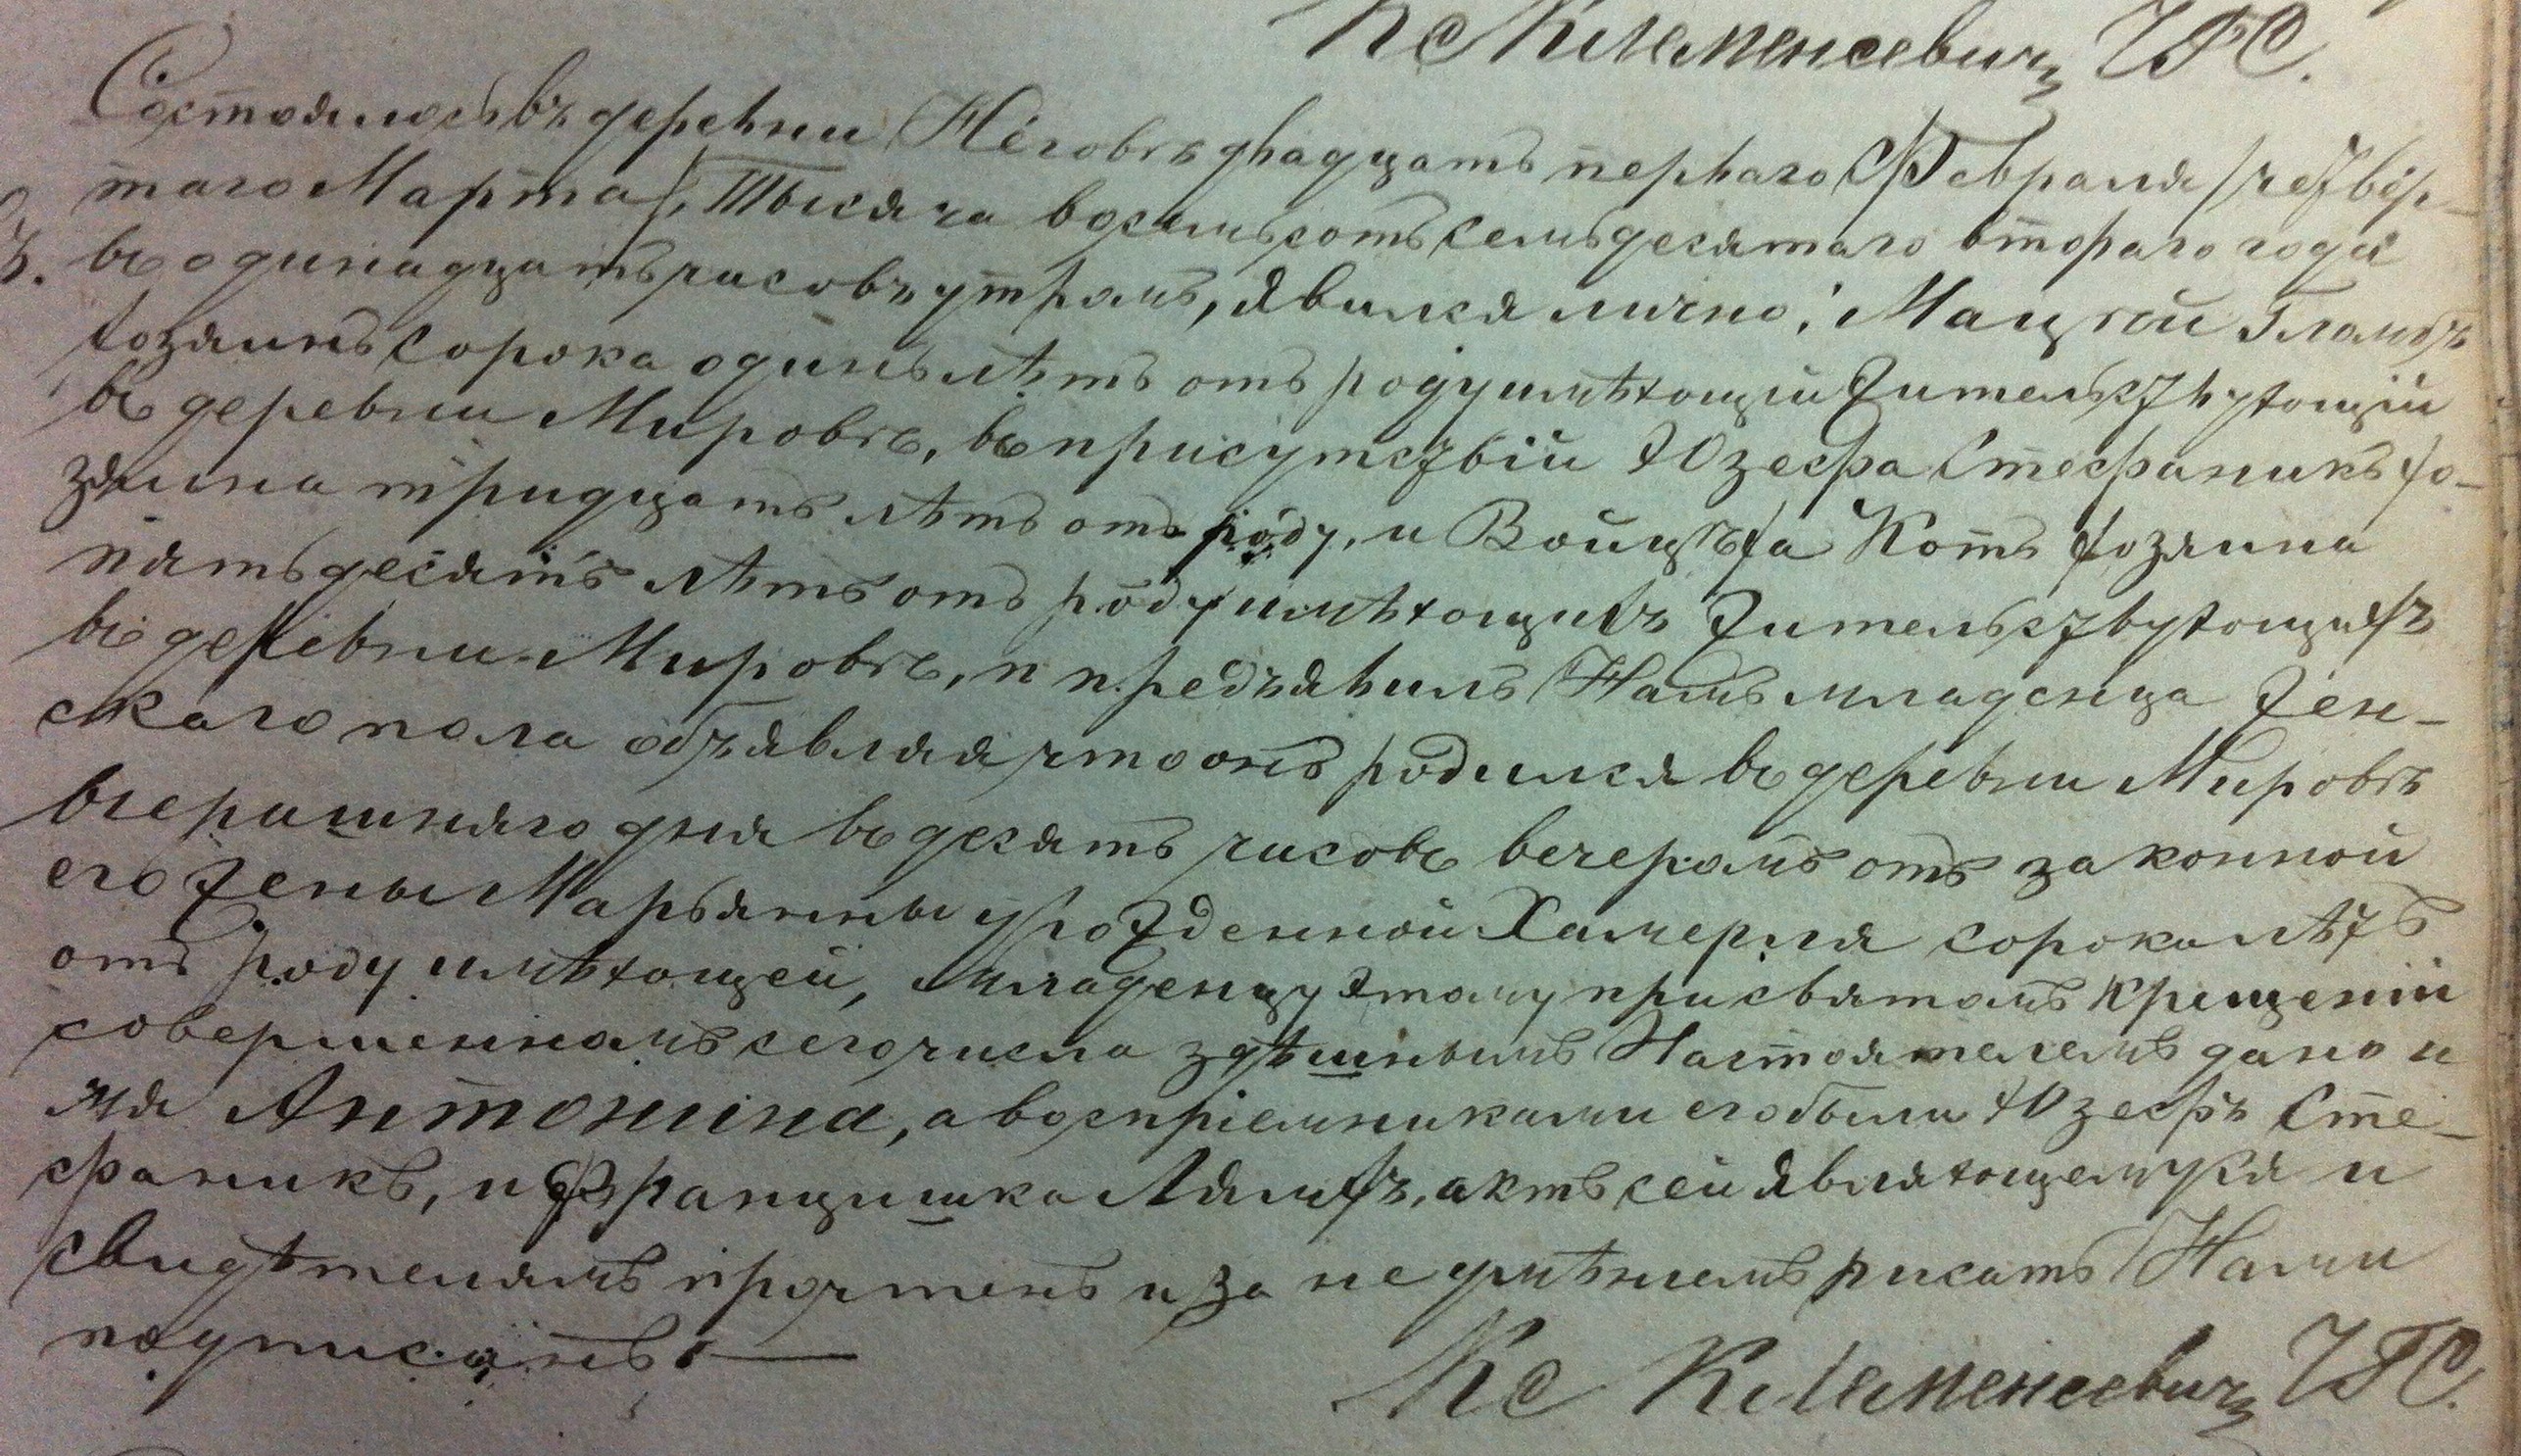 Кс Клеменсевичъ УГС.
Состоялось въ деревни Кіговѣ двадцать перваго Февраля /четвер-
таго Марта/, Тысяча восемьсотъ семьдесятаго втораго года
въ одинадцать часовъ утромъ, явился лично: Мацѣй Гломбъ
хозяинъ сорока одинъ лѣтъ отъ роду имѣющій жительствующій
въ деревни Мировѣ, въ присутствіи Юзефа Стефаникъ хо-
зяина тридцать лѣтъ отъ роду, и Войцѣха Котъ хозяина
пятьдесятъ лѣтъ отъ роду имѣющихъ жительствующихъ
въ деревни Мировѣ, и предъявилъ Намъ младенца жен-
скаго пола объявляя что онъ родился въ деревни Мировѣ
вчерашняго дня въ десять часовъ вечеромъ отъ законной
его жены Марьянны урожденной Хамерля сорока лѣтъ
отъ роду имѣющей, младенцу этому при святомъ крещеніи
совершенномъ сего числа здѣшнымъ Настоятелемъ дано и
мя Антонина, а воспріемниками его были Юзефъ Сте-
фаникъ, и Францишка Лямхъ, актъ сей являющемуся и
свидѣтелямъ прочтенъ и за не умѣніемъ писать Нами
подписанъ. —
Кс Клеменсевичъ УГС.